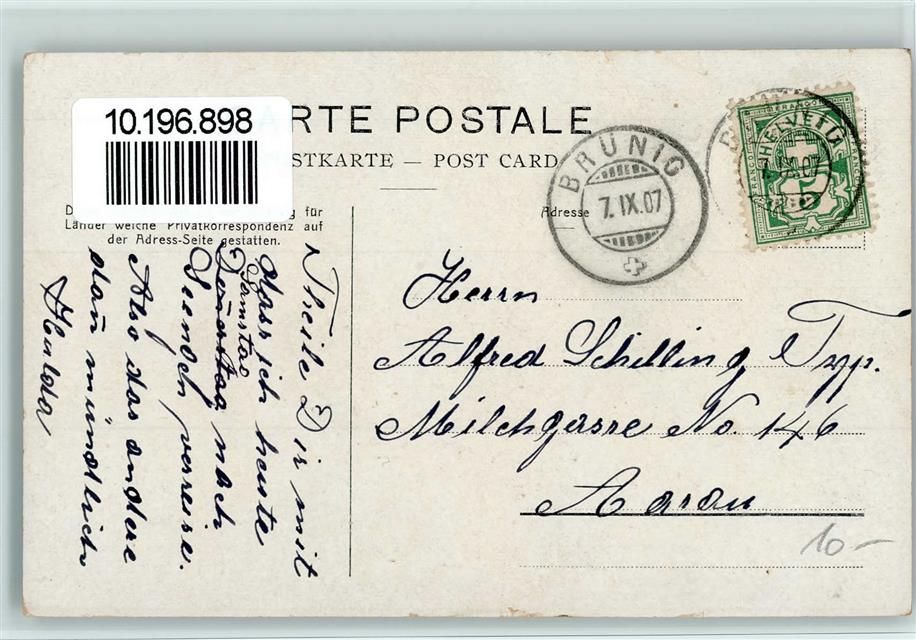 10.196.898
ARTE POSTALE
STKARTE — POST CARD
Adresse
für
Länder welche Privatkorrespondenz auf
der Adress-Seite gestatten.
BRÜNIG
7. IX. 07
HELVETIA
FRANCO
Herrn
Alfred Schilling Typ.
Milchgasse No. 146
Aarau
10-
Theile Dir mit
dass ich heute
Samstag
nach
Seengen verreise.
Also das andere
dann mündlich
Hulda